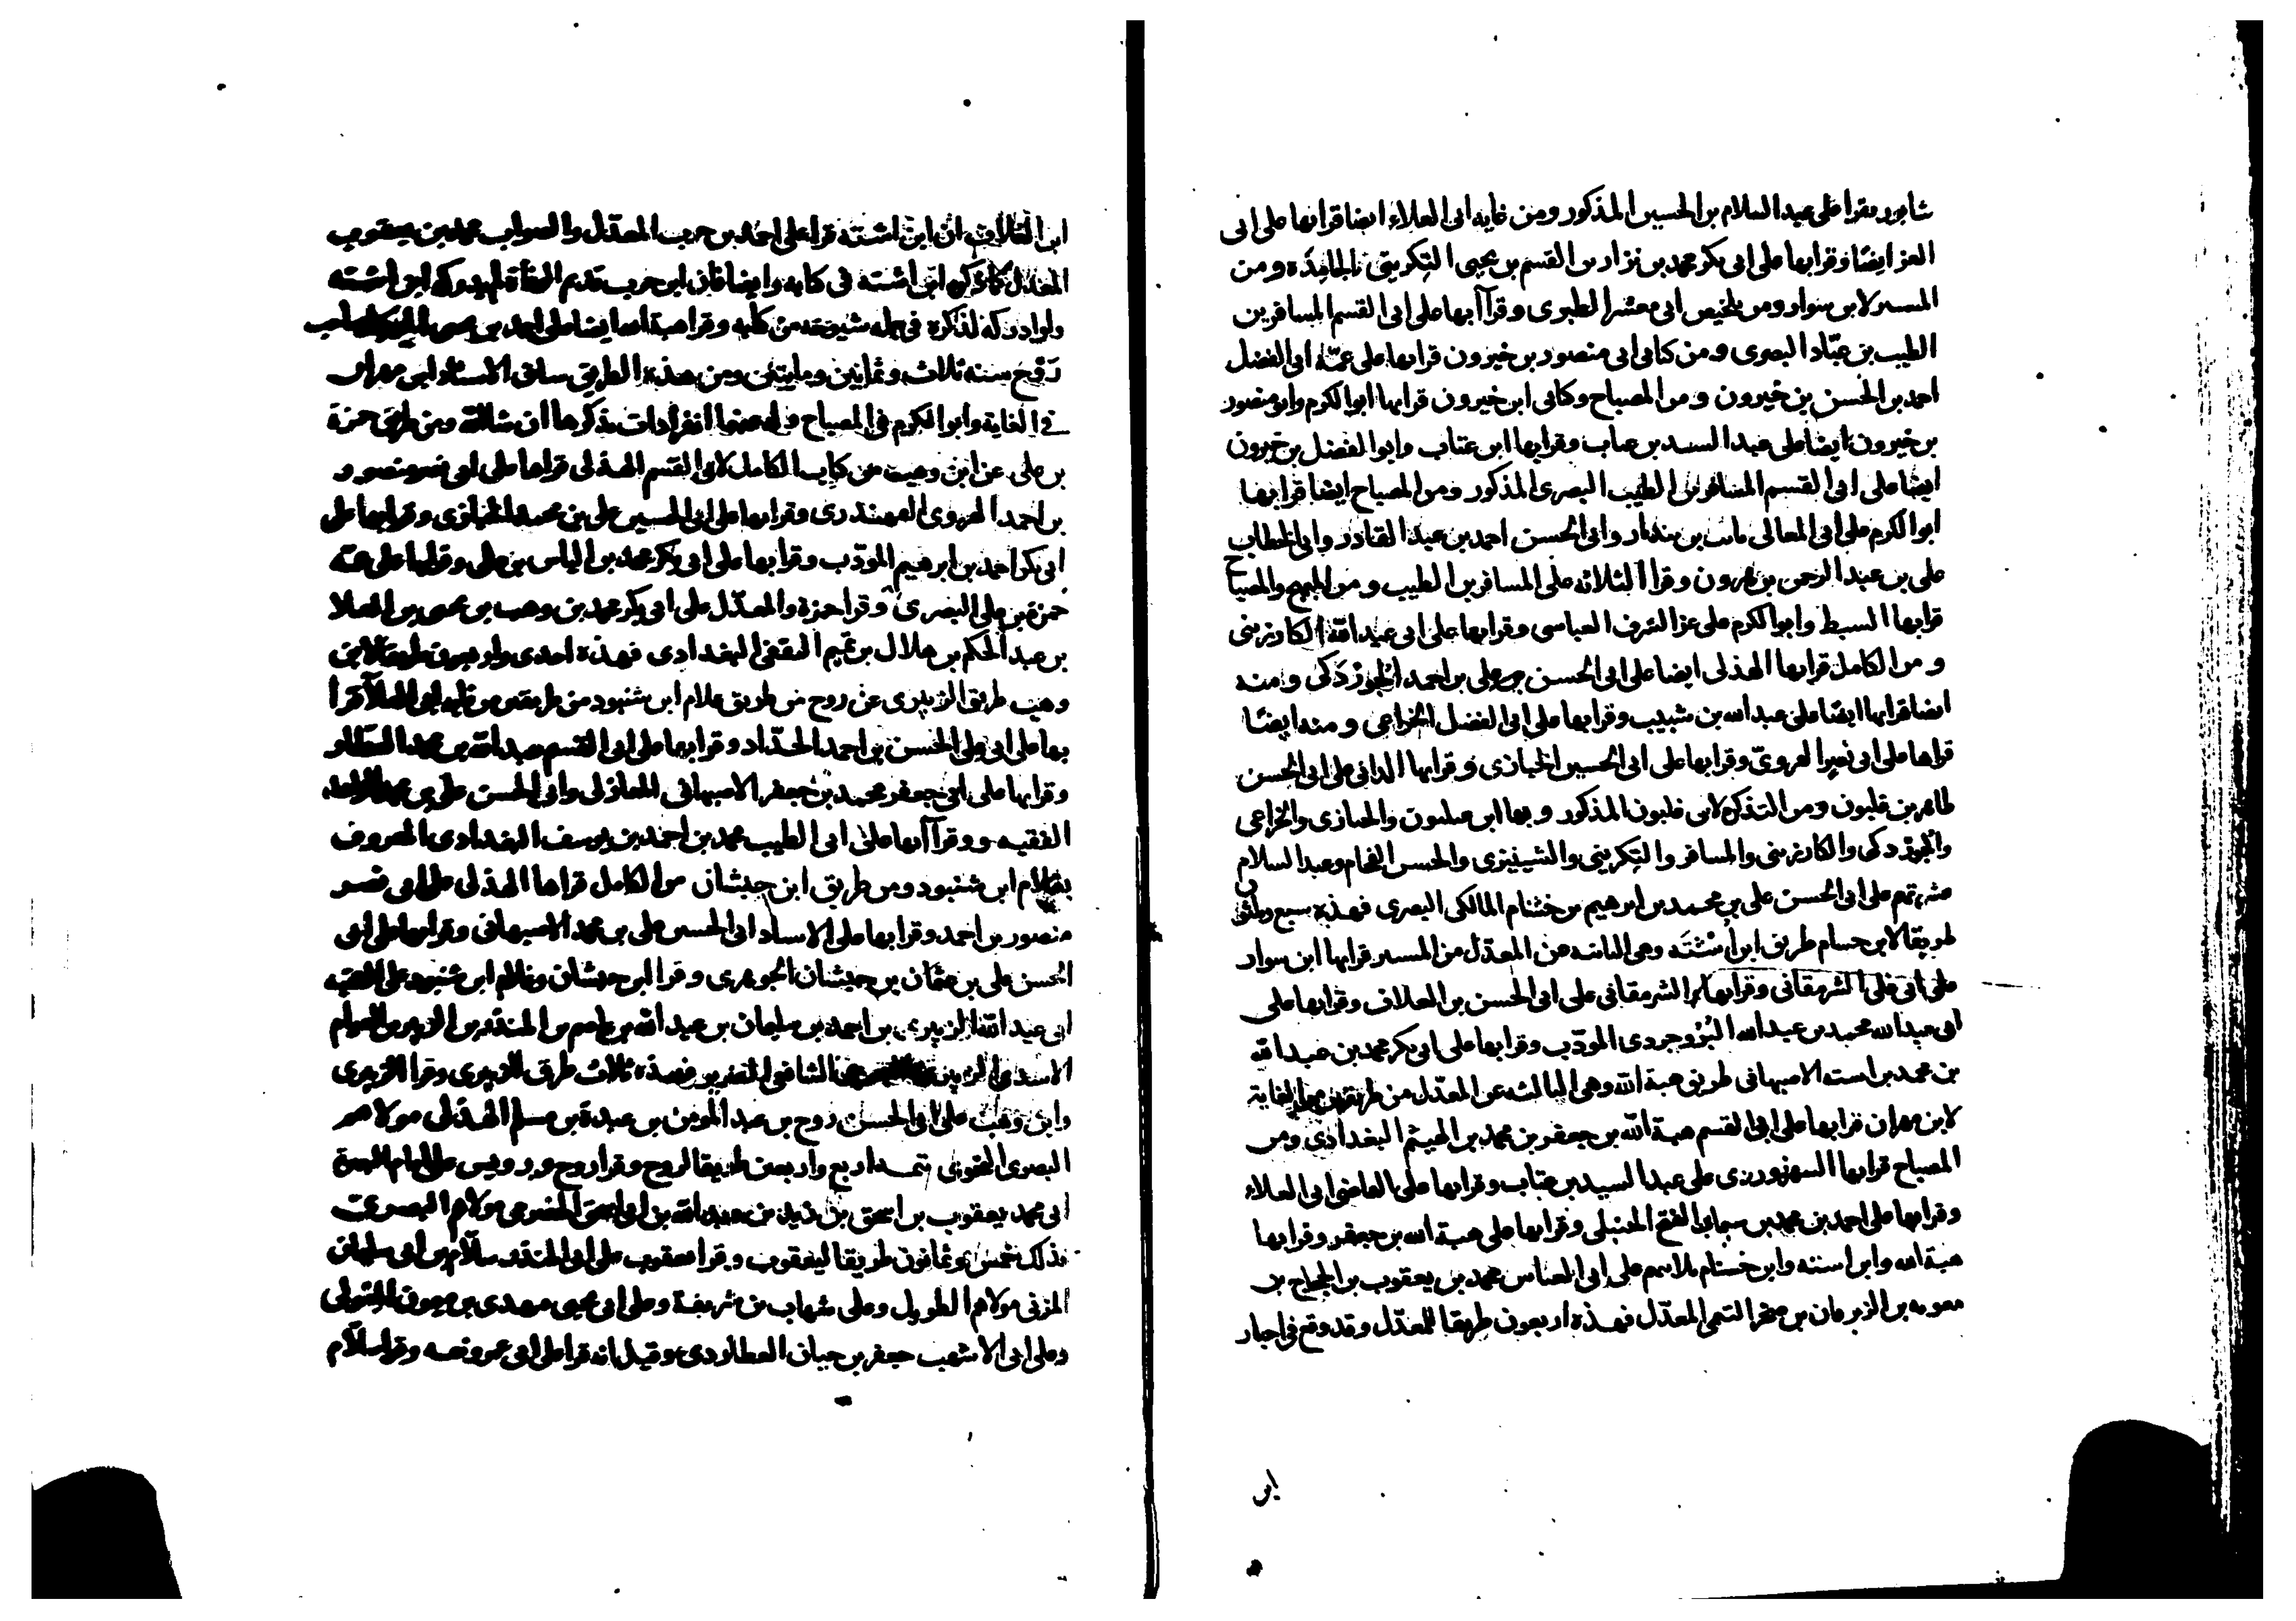 شابور وقرا على عبد السلام بن الحسين المذكور ومن غايه ابى العلاء ايضا قرا بها على ابى
العز ايضا وقرا بها على ابى بكر محمد بن نزار بن القسم بن يحيى التكريتى بالجامدة ومن
المستنير لابن سوار ومن تلخيص ابى معشر الطبرى وقرآ بها على ابى القسم المسافر بن
الطيب بن عبّاد البصرى ومن كتابى ابى منصور بن خيرون قرا بها على عمّه ابى الفضل
احمد بن الحسن بن خيرون ومن المصباح وكتابى ابن خيرون قرا بها ابو الكرم وابو منصور
بن خيرون ايضا على عبد السيد بن عتاب وقرا بها ابن عتاب وابو الفضل بن خيرون
ايضا على ابى القسم المسافر بن الطيب البصرى المذكور ومن المصباح ايضا قرا بها
ابو الكرم على ابى المعالى ثابت بن بندار وابى الحسن احمد بن عبد القادر وابى الخطاب
على بن عبد الرحمن بن هرون وقرا الثلاثه على المسافر بن الطيب ومن المبهج والمصباح
قرا بها السبط وابو الكرم على عز الشرف العباسى وقرا بها على ابى عبد الله الكارزينى
ومن الكامل قرا بها الهذلى ايضا على ابى الحسن على بن احمد الجوزدكى ومنه
ايضا قرا بها ايضا على عبد الله بن شبيب وقرا بها على ابى الفضل الخزاعى ومنه ايضا
قراها على ابى نصر الهروىّ وقرا بها على ابى الحسين الخبازى وقرا بها الدانى على ابى الحسن
طاهر بن غلبون ومن التذكرة لابن غلبون المذكور وبها ابن غلبون والخبازى والخزاعى
والجوزدكى والكارزينى والمسافر والتكريتى والشينيزى والحسن الفحام وعبد السلام
عشرتهم على ابى الحسن على بن محمد بن ابرهيم بن خشنام المالكى البصرى فهذه سبع وثلثون
طريقا لابن خشنام طريق ابن اشتَه وهى الثانيه عن المعدّل من المستنير قرا بها ابن سوار
على ابى على الشرمقانى وقرا بها الشرمقانى على ابى الحسن بن العلاف وقرا بها على
ابى عبد الله محمد بن عبد الله البُرُوجردى المودّب وقرا بها على ابى بكر محمد بن عبد الله
بن محمد بن اشته الاصبهانى طريق هبة الله وهى الثالثه عن المعدّل من طريقين من الغاية
لابن مهران قرا بها على ابى القسم هبة الله بن جعفر بن محمد بن الهيثم البغدادى ومن
المصباح قرا بها الشهرزورى على عبد السيد بن عتاب وقرا بها على القاضى ابى العلاء
وقرا بها على احمد بن محمد بن سيما ابى الفتح الحنبلى وقرا بها على هبة الله بن جعفر وقرا بها
هبة الله وابن اشته وابن خشنام ثلاثتهم على ابى العباس محمد بن يعقوب بن الحجاج بن
معويه بن الزبرقان بن صخر التيمى المعدّل فهذه اربعون طريقا للمعدّل وقد وقع فى اخبار
ابن
ابن العلاف ان ابن اشته قرا على احمد بن حرب المعدّل والصواب محمد بن يعقوب
المعدل كما ذكره ابن اشته فى كتابه وايضا فان ابن حرب قديم الوفاة لم يدركه ابن اشته
ولو ادركه لذكره فى جمله شيوخه من كتابه وقرا هبة الله ايضا على احمد بن يحيى الوكيل صاحب
رَوْح سنه ثلاث وثمانين ومايتين ومن هذه الطريق ساقه الاستاذ ابن مهران
فى الغاية وابو الكرم فى المصباح وله عنهما انفرادات نذكرها ان شا الله ومن طريق حمزة
بن على عن ابن وهب من كتاب الكامل لابى القسم الهذلى قراها على ابى نصر منصور
بن احمد الهروى القهندزى وقرا بها على ابى الحسين على بن محمد الخبازى وقرا بها على
ابى بكر احمد بن ابرهيم المودّب وقرا بها على ابى بكر محمد بن الياس بن على وقرا بها على عمّه
حمزة بن على البصرى وقرا حمزة والمعدّل على ابى بكر محمد بن وهب بن يحيى بن العلا
بن عبد الحكم بن هلال بن تميم الثقفى البغدادى فهذه احدى واربعون طريقا لابن
وهب طريق الزبيرى عن روح من طريق غلام ابن شنبود من طريقين من غايه ابى العلآ قرا
بها على ابى على الحسن بن احمد الحدّاد وقرا بها على ابى القسم عبد الله بن محمد العطّار
وقرا بها على ابى جعفر محمد بن جعفر الاصبهانى المغازلى وابى الحسن على بن محمد الزاهد
الفقيه وقرآ بها على ابى الطيب محمد بن احمد بن يوسف البغدادى المعروف
بغلام ابن شنبود ومن طريق ابن حبشان من الكامل قراها الهذلى على ابى نصر
منصور بن احمد وقرا بها على الاستاد ابى الحسين على بن محمد الاصبهانى وقرا بها على ابى
الحسن على بن عثمان بن حبشان الجوهرى وقرا ابن حبشان وغلام ابن شنبود على الفقيه
ابى عبد الله الزبيرى بن احمد بن سليمان بن عبد الله بن عاصم بن المنذر بن الزبير بن العوام
الاسدى الزبيرى الشافعى الضرير فهذه ثلاث طرق للزبيرى وقرا الزبيرى
وابن وهب على ابى الحسن روح بن عبد المومن بن عبدة بن مسلم الهذلى مولاهم
البصرى النحوى تتمه اربع واربعين طريقا لروح وقرا روح ورويس على امام البصرة
ابى محمد يعقوب بن اسحق بن زيد بن عبد الله بن ابى اسحق الحضرمى مولاهم البصرى
فذلك خمس وثمانون طريقا ليعقوب وقرا يعقوب على ابى المنذر سلاّم بن ابى سليمان
المزنى مولاهم الطويل وعلى شهاب بن شرنفة وعلى ابى يحيى مهدى بن ميمون المعولى
وعلى ابى الاشهب جعفر بن حيان العطاردى وقيل انه قرا على ابى عمرو نفسه وقرا سلاّم